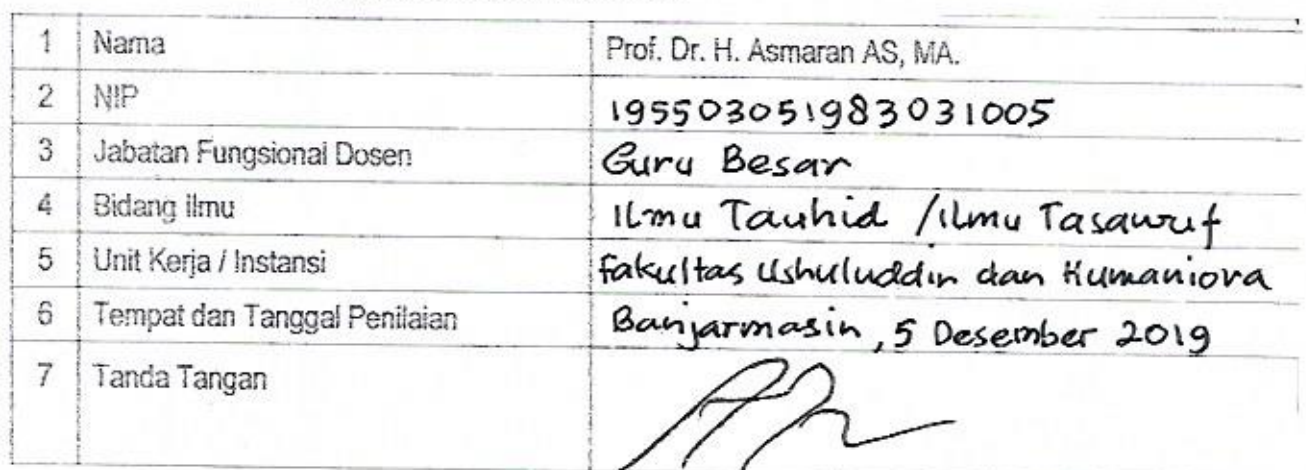 1 Nama Prof. Dr. H. Asmaran AS, MA.
2 NIP 195503051983031005
3 Jabatan Fungsional Dosen Guru Besar
4 Bidang Ilmu Ilmu Tauhid / Ilmu Tasawuf
5 Unit Kerja / Instansi Fakultas Ushuluddin dan Humaniora
6 Tempat dan Tanggal Penilaian Banjarmasin, 5 Desember 2019
7 Tanda Tangan